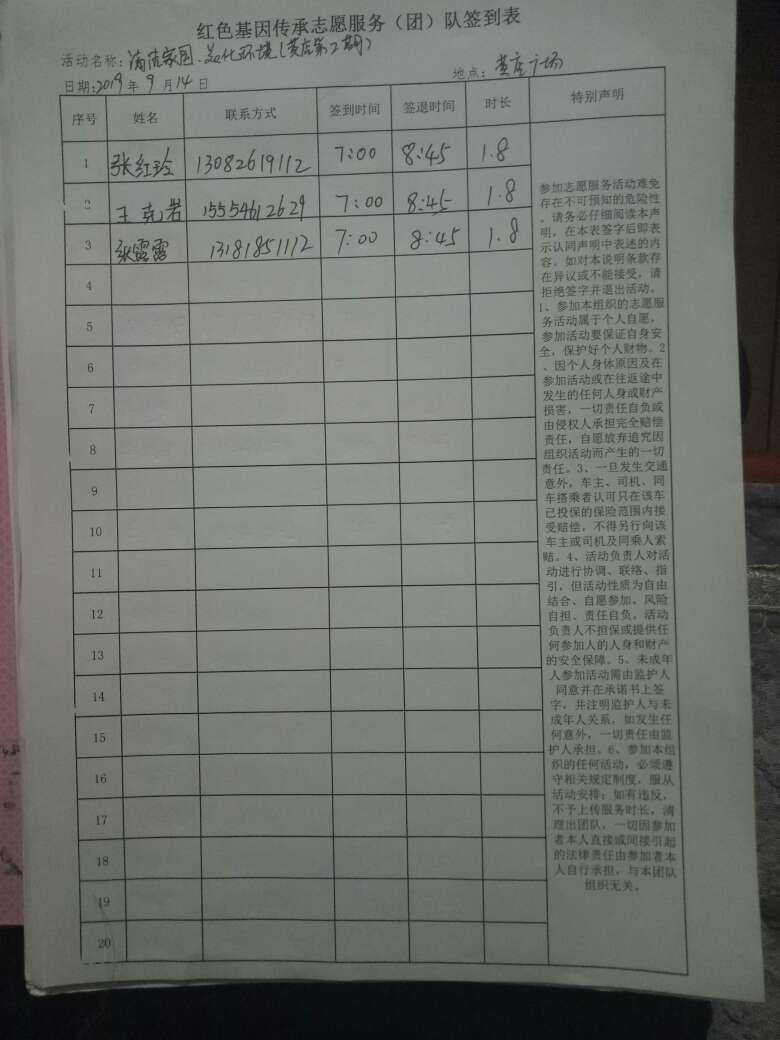 红色基因传承志愿服务（团）队签到表
活动名称：清洁家园.美化环境（黄庄第2期）
日期:2019年9月14日 地点：黄庄广场
序号 姓名 联系方式 签到时间 签退时间 时长 特别声明
1 张红玲 13082619112 7:00 8:45 1.8
2 王克岩 15554612629 7:00 8:45 1.8
3 张露露 13181851112 7:00 8:45 1.8
4
5
6
7
8
9
10
11
12
13
14
15
16
17
18
19
20
参加志愿服务活动难免
存在不可预知的危险性
，请务必仔细阅读本声
明，在本表签字后即表
示认同声明中表述的内
容。如对本说明条款存
在异议或不能接受，请
拒绝签字并退出活动。
1、参加本组织的志愿服
务活动属于个人自愿，
参加活动要保证自身安
全，保护好个人财物。2
、因个人身体原因及在
参加活动或在往返途中
发生的任何人身或财产
损害，一切责任自负或
由侵权人承担完全赔偿
责任，自愿放弃追究因
组织活动而产生的一切
责任。3、一旦发生交通
意外，车主、司机、同
车搭乘者认可只在该车
已投保的保险范围内接
受赔偿，不得另行向该
车主或司机及同乘人索
赔。4、活动负责人对活
动进行协调、联络、指
引，但活动性质为自由
结合、自愿参加、风险
自担、责任自负。活动
负责人不担保或提供任
何参加人的人身和财产
的安全保障。5、未成年
人参加活动需由监护人
同意并在承诺书上签
字，并注明监护人与未
成年人关系，如发生任
何意外，一切责任由监
护人承担。6、参加本组
织的任何活动，必须遵
守相关规定制度，服从
活动安排；如有违反，
不予上传服务时长，清
理出团队，一切因参加
者本人直接或间接引起
的法律责任由参加者本
人自行承担，与本团队
组织无关。